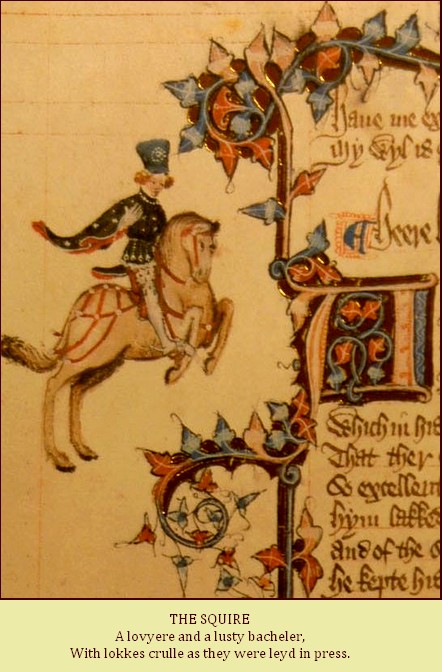 haue me ex
my wyl is
Heere
Which in his
That ther
So excellent
hym lakke
and of the
he kepte his
THE SQUIRE
A lovyere and a lusty bacheler,
With lokkes crulle as they were leyd in press.